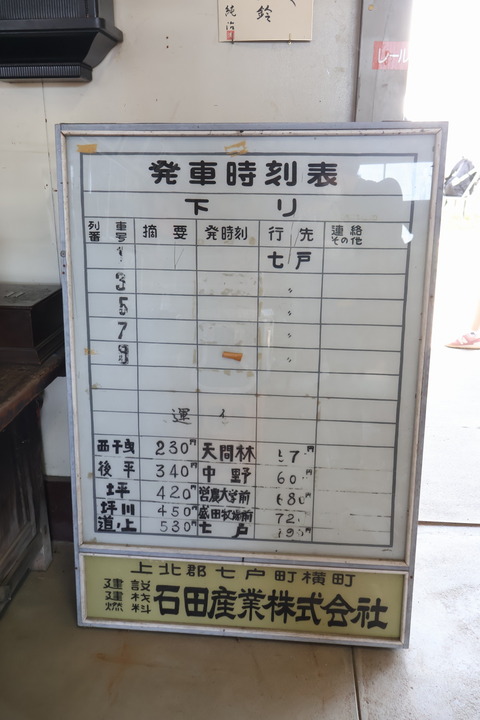 鈴
純治
レール
発車時刻表
下り
列車番号 摘要 発時刻 行先 連絡その他
1 七戸
3 〃
5 〃
7 〃
9 〃
運
西千曳 230円 天間林
後平 340円 中野 60
坪 420円 営農大学前 680
坪川 450円 盛田牧場前 72
道ノ上 530円 七戸
上北郡七戸町横町
建設 建材 燃料 石田産業株式会社